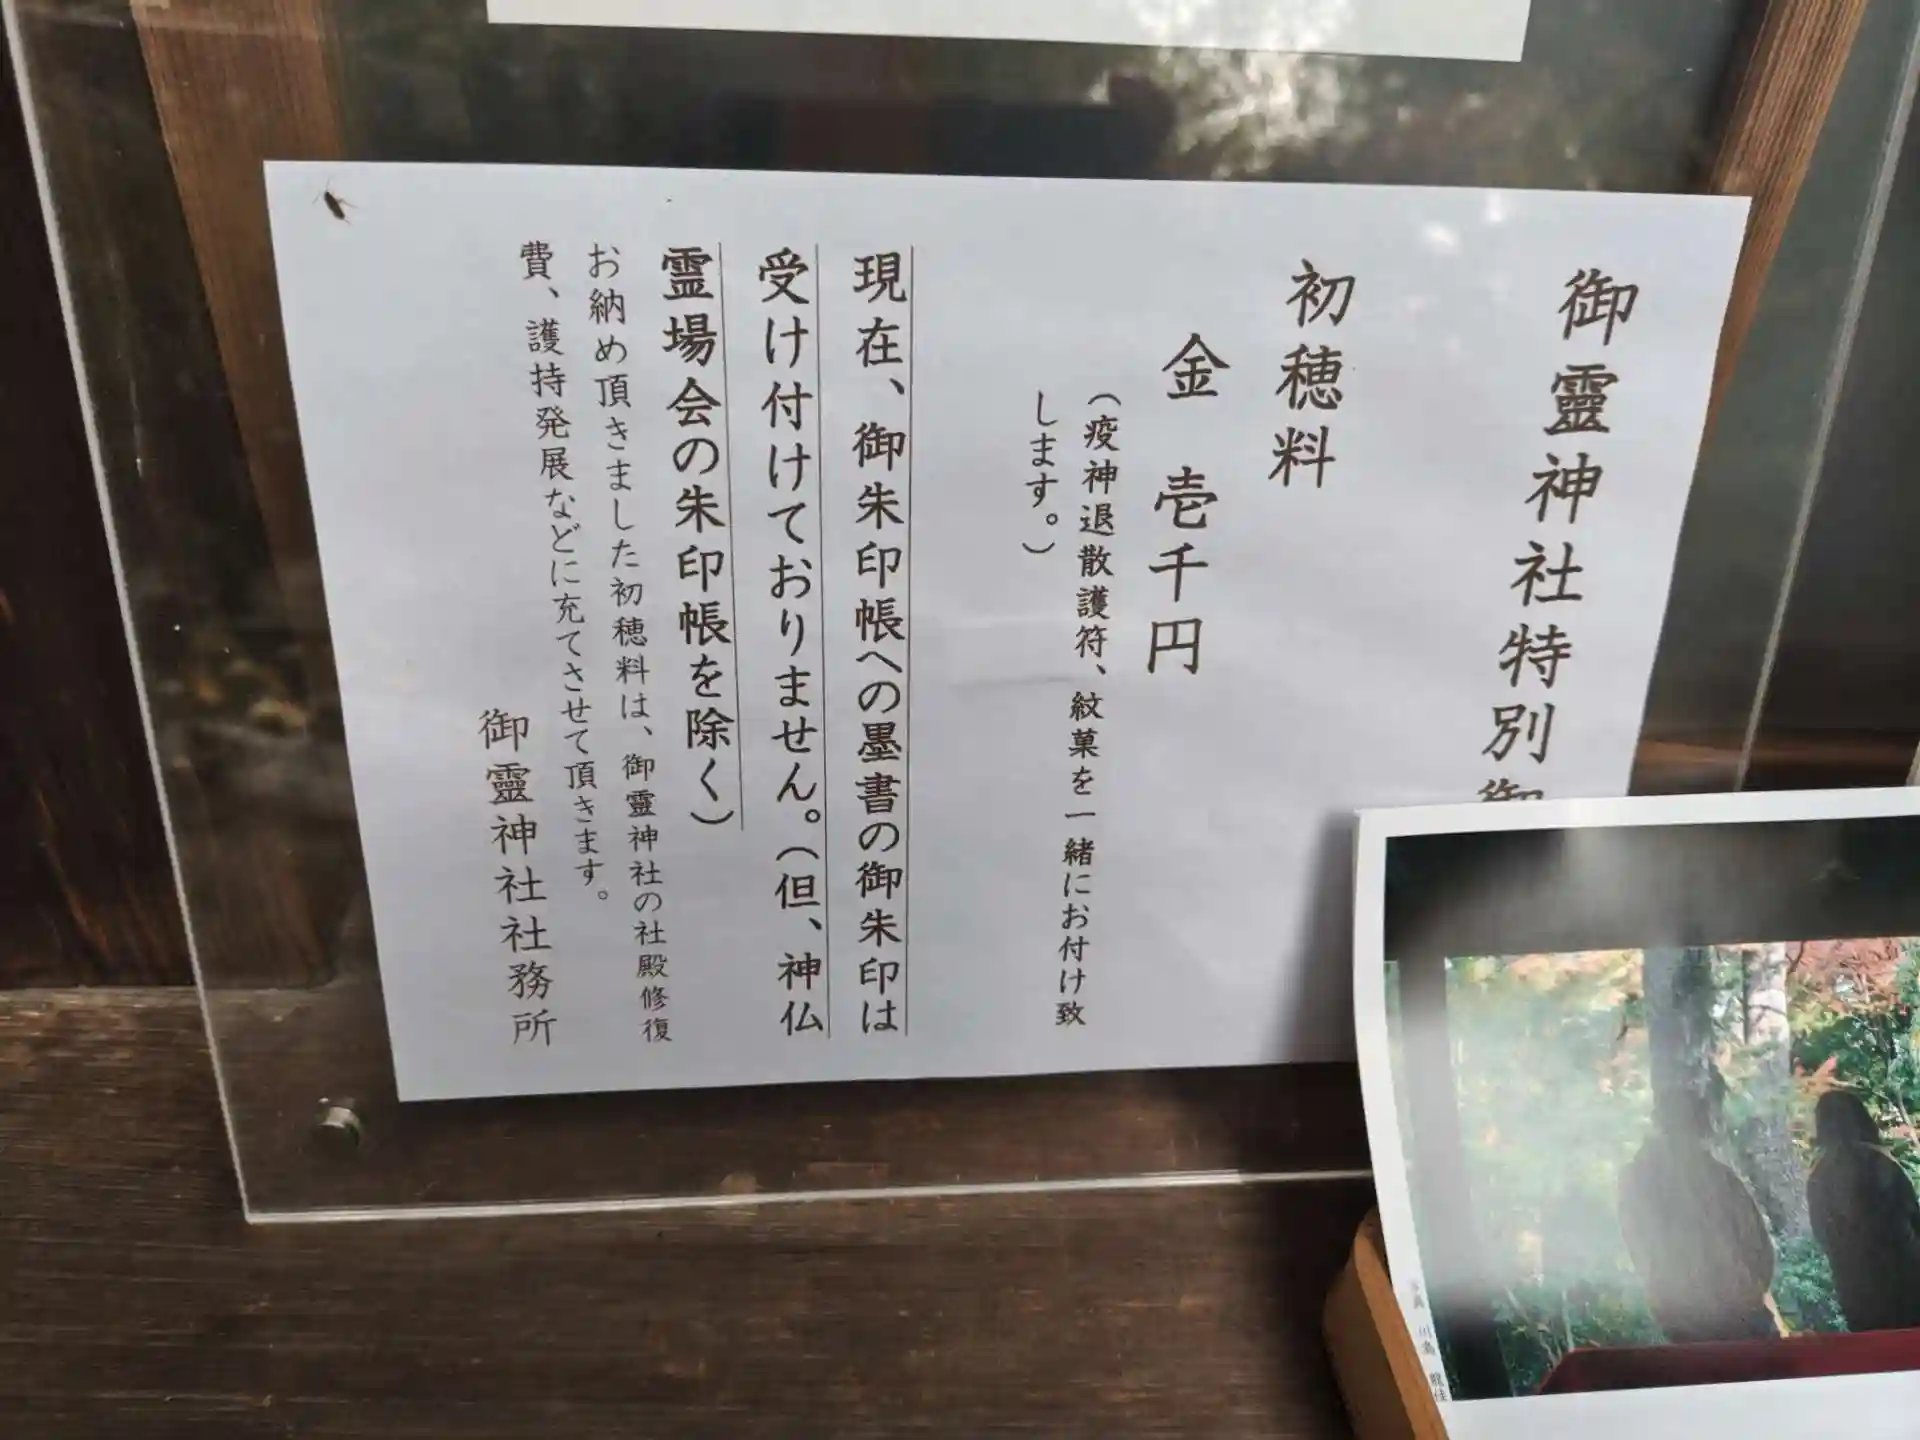 御靈神社特別御
初穂料
金 壱千円
(疫神退散護符、紋菓を一緒にお付け致
します。)
現在、御朱印帳への墨書の御朱印は
受け付けておりません。(但、神仏
霊場会の朱印帳を除く)
お納め頂きました初穂料は、御靈神社の社殿修復
費、護持発展などに充てさせて頂きます。
御靈神社社務所